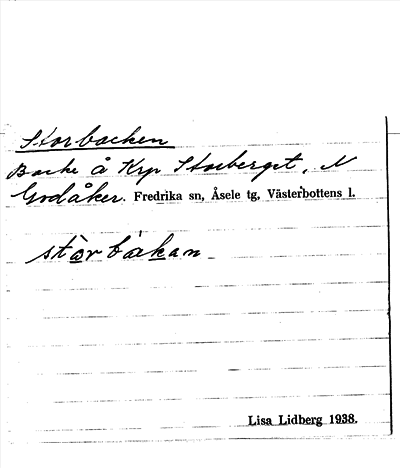 Storbacken
Backe å Krp Storberget, N
Godåker. Fredrika sn, Åsele tg, Västerbottens l.
stòrbàkan
Lisa Lidberg 1938.